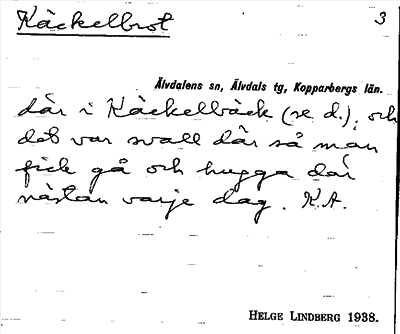 Käckelbrot
3
Älvdalens sn, Älvdals tg, Kopparbergs län.
där i Käckelbäck (se d.), och
det var svall där så man
fick gå och hugga där
nästan varje dag. K.A.
HELGE LINDBERG 1938.